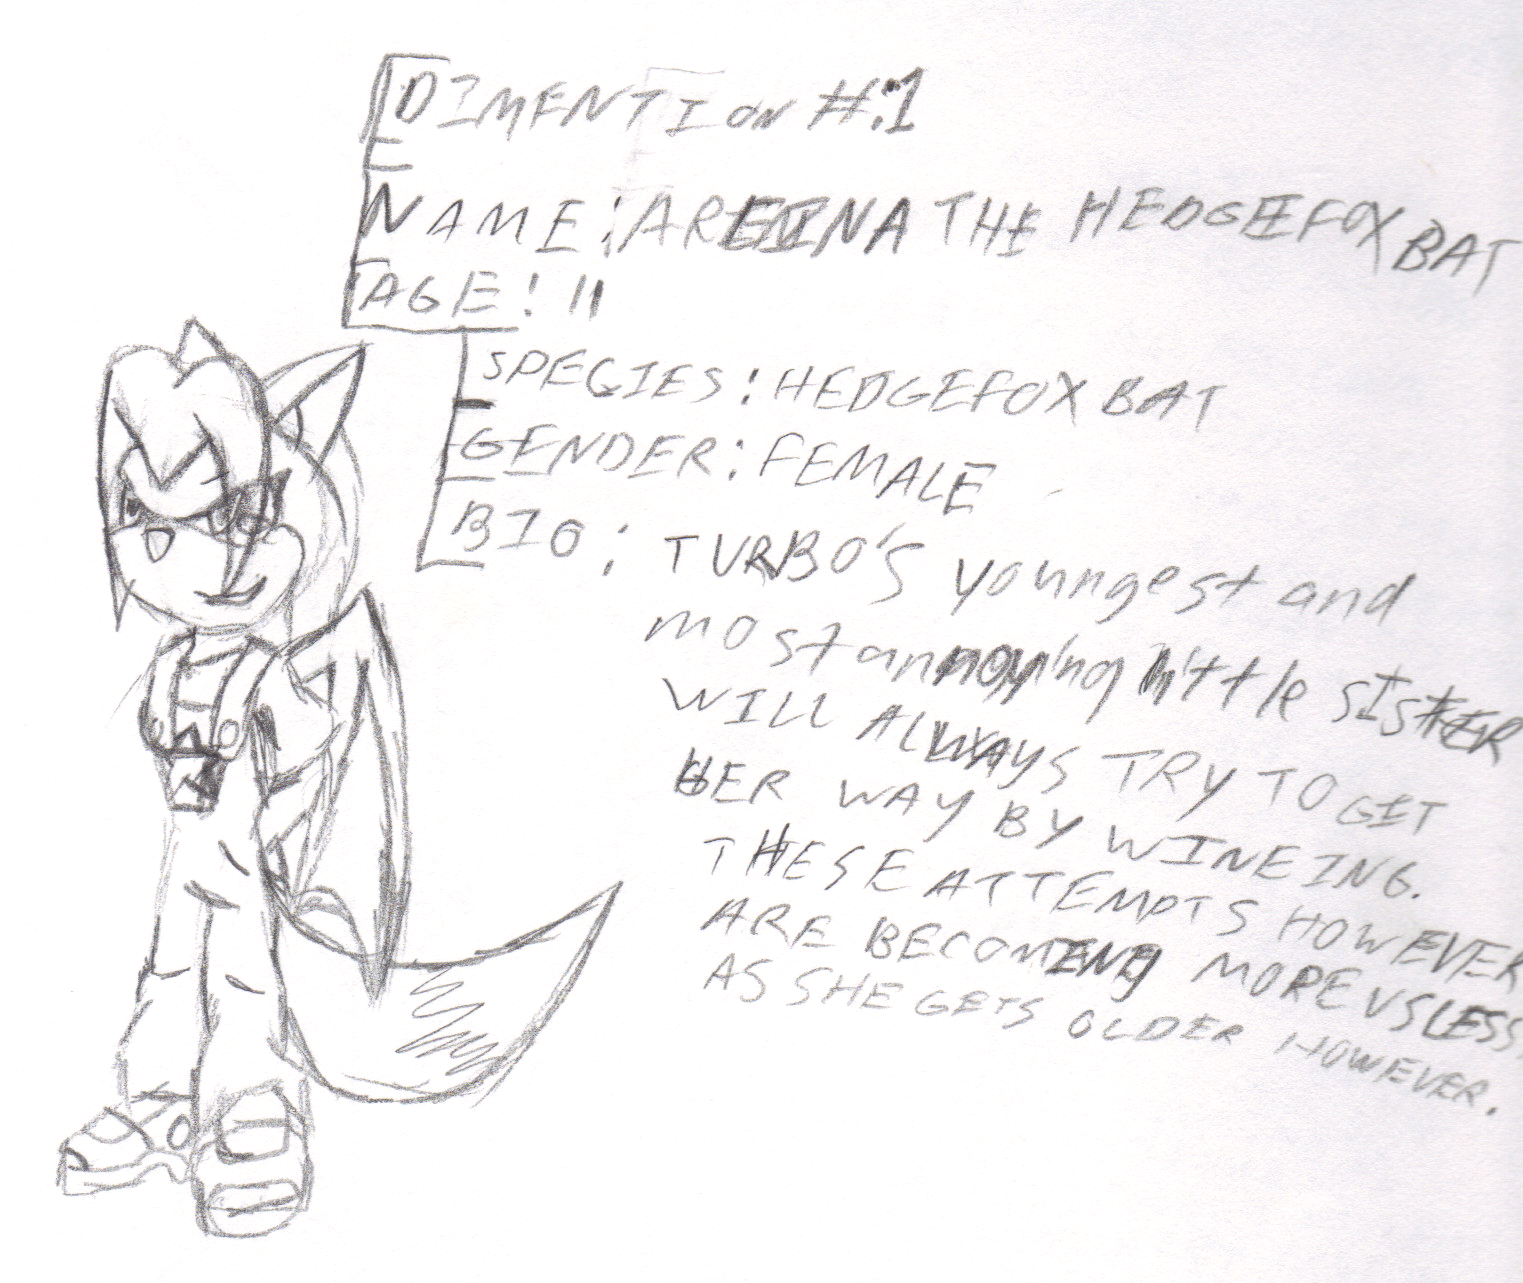 DIMENTION #:1
NAME: AREINA THE HEDGEFOX BAT
AGE: 11
SPECIES: HEDGEFOX BAT
GENDER: FEMALE
BIO: TURBO'S youngest and
most annoying little SISTER
WILL ALWAYS TRY TO GET
HER WAY BY WINEING.
THESE ATTEMPTS HOWEVER
ARE BECOMEING MORE USLESS
AS SHE GETS OLDER HOWEVER.